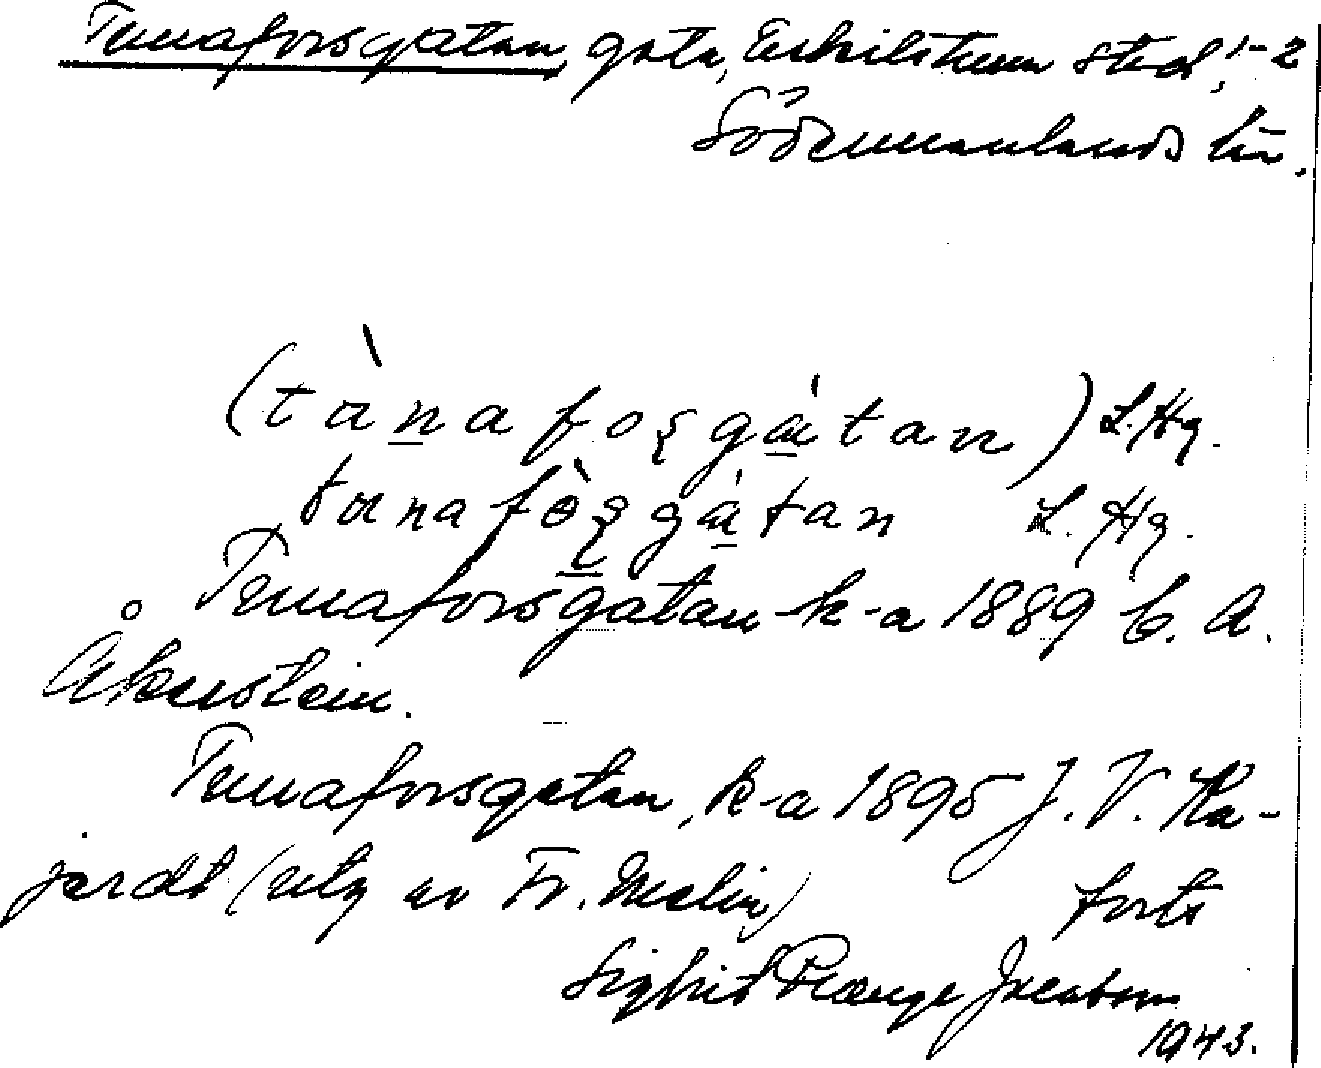 Tunaforsgatan, gata, Eskilstuna stad, 1-2
Södermanlands län.
(tànafoʂgátan) L. Hg.
tanafòʂgátan L. Hg.
Tunaforsgatan k-a 1889 C. A.
Åkerstein.
Tunaforsgatan, k-a 1895 J. V. Ka-
jerdt (utg av Fr. Malin) forts
Sigfrid Plænge Jacobson
1943.